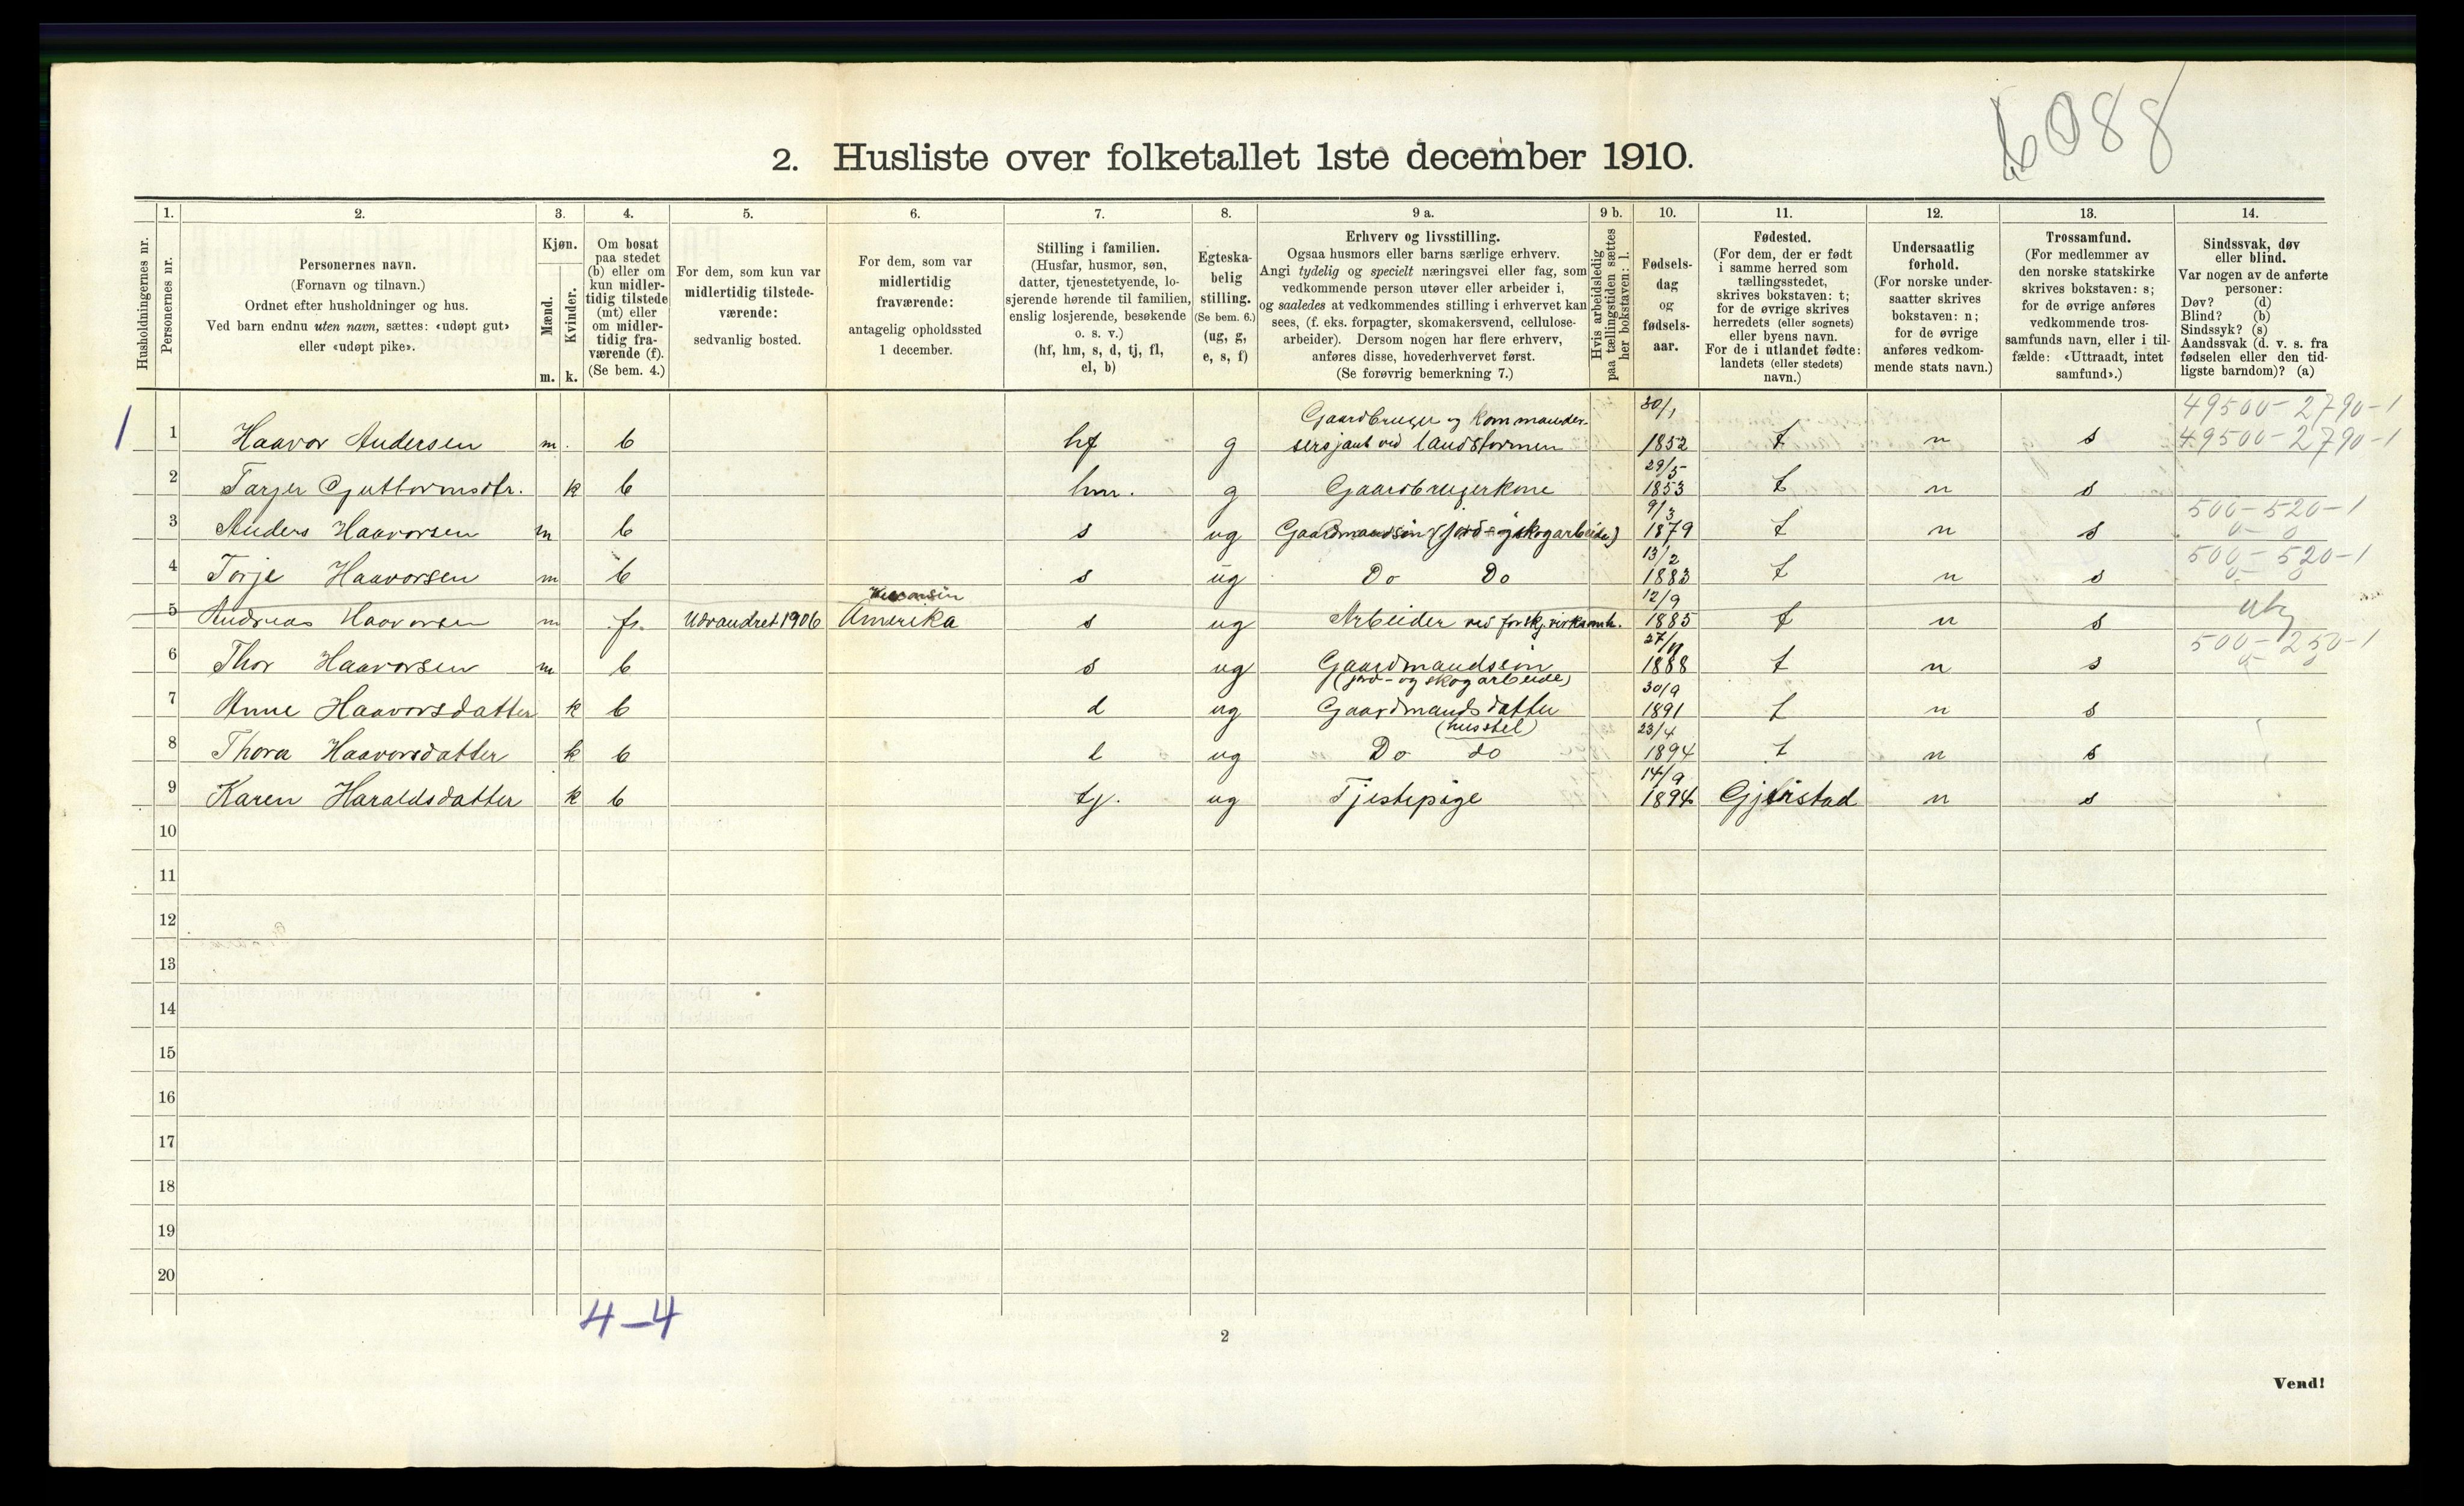 6088
2. Husliste over folketallet 1ste december 1910.
1. 2. 3. 4. 5. 6. 7. 8. 9 a. 9 b. 10. 11. 12. 13. 14.
Husholdningernes nr.
Personernes nr.
Personernes navn.
(Fornavn og tilnavn.)
Ordnet efter husholdninger og hus.
Ved barn endnu uten navn, sættes: «udøpt gut»
eller «udøpt pike».
Kjøn.
Mænd.
Kvinder.
m. k.
Om bosat
paa stedet
(b) eller om
kun midler-
tidig tilstede
(mt) eller
om midler-
tidig fra-
værende (f).
(Se bem. 4.)
For dem, som kun var
midlertidig tilstede-
værende:
sedvanlig bosted.
For dem, som var
midlertidig
fraværende:
antagelig opholdssted
1 december.
Stilling i familien.
(Husfar, husmor, søn,
datter, tjenestetyende, lo-
sjerende hørende til familien,
enslig losjerende, besøkende
o. s. v.)
(hf, hm, s, d, tj, fl,
el, b)
Egteska-
belig
stilling.
(Se bem. 6.)
(ug, g,
e, s, f)
Erhverv og livsstilling.
Ogsaa husmors eller barns særlige erhverv.
Angi tydelig og specielt næringsvei eller fag, som
vedkommende person utøver eller arbeider i,
og saaledes at vedkommendes stilling i erhvervet kan
sees, (f. eks. forpagter, skomakersvend, cellulose-
arbeider). Dersom nogen har flere erhverv,
anføres disse, hovederhvervet først.
(Se forøvrig bemerkning 7.)
Hvis arbeidsledig
paa tællingstiden sættes
her bokstaven: l.
Fødsels-
dag
og
fødsels-
aar.
Fødested.
(For dem, der er født
i samme herred som
tællingsstedet,
skrives bokstaven: t;
for de øvrige skrives
herredets (eller sognets)
eller byens navn.
For de i utlandet fødte:
landets (eller stedets)
navn.)
Undersaatlig
forhold.
(For norske under-
saatter skrives
bokstaven: n;
for de øvrige
anføres vedkom-
mende stats navn.)
Trossamfund.
(For medlemmer av
den norske statskirke
skrives bokstaven: s;
for de øvrige anføres
vedkommende tros-
samfunds navn, eller i til-
fælde: «Uttraadt, intet
samfund».)
Sindssvak, døv
eller blind.
Var nogen av de anførte
personer:
Døv? (d)
Blind? (b)
Sindssyk? (s)
Aandssvak (d. v. s. fra
fødselen eller den tid-
ligste barndom)? (a)
Gaardbruger og kommander- 30/1 49500-2790-1
1 1 Haavor Andersen m. b hf g sersjant ved landstormen 1852 t n s 49500-2790-1
29/5
2 Tarjer Guttormsdtr. k b hm. g Gaardbrugerkone 1853 t n s
9/3 500-520-1
3 Anders Haavorsen m b s ug Gaardmandssön (jord- og skogarbeide) 1879 t n s 0- 0
13/2 500-520-1
4 Torje Haavorsen m b s ug Do Do 1883 t n s 0- 0
12/9
5 Andreas Haavorsen m fr. Udvandret 1906 Amerika s ug Arbeider ved forskj. virksomh. 1885 t n s
500-250-1
6 Thor Haavorsen m b s ug Gaardmandssön 1888 t n s
(jord- og skogarbeide) 30/9
7 Anne Haavorsdatter k b d ug Gaardmandsdatter 1891 t n s
(husstel) 23/4
8 Thora Haavorsdatter k b d ug Do do 1894 t n s
14/9
9 Karen Haraldsdatter k b tj. ug Tjestepige 1894 Gjerstad n s
10
11
12
13
14
15
16
17
18
19
20
4-4
2
Vend!